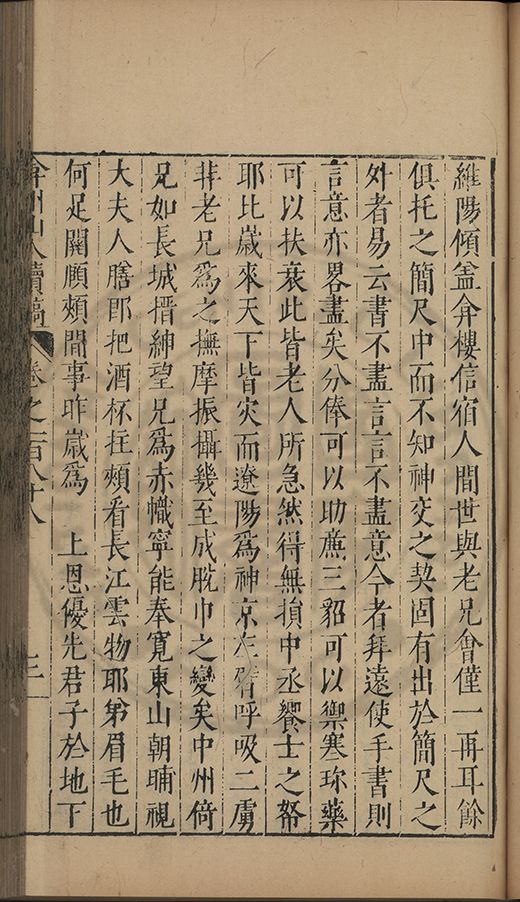 維陽傾盖弇樓信宿人間世與老兄會僅一再耳餘
俱托之簡尺中而不知神交之契固有出於簡尺之
外者易云書不盡言言不盡意今者拜遠使手書則
言意亦畧盡矣分俸可以助廌三貂可以禦寒珎藥
可以扶衰此皆老人所急然得無損中丞饗士之帑
耶比歲來天下皆灾而遼陽為神京左臂呼吸二虜
非老兄為之撫摩振攝幾至成脫巾之變矣中州倚
兄如長城搢紳望兄為赤幟寧能奉寬東山朝晡視
大夫人膳即把酒杯拄頰看長江雲物耶第眉毛也
何足關頎頰間事昨歲為　上恩優先君子於地下
弇州山人續稿　卷之一百八十八　三